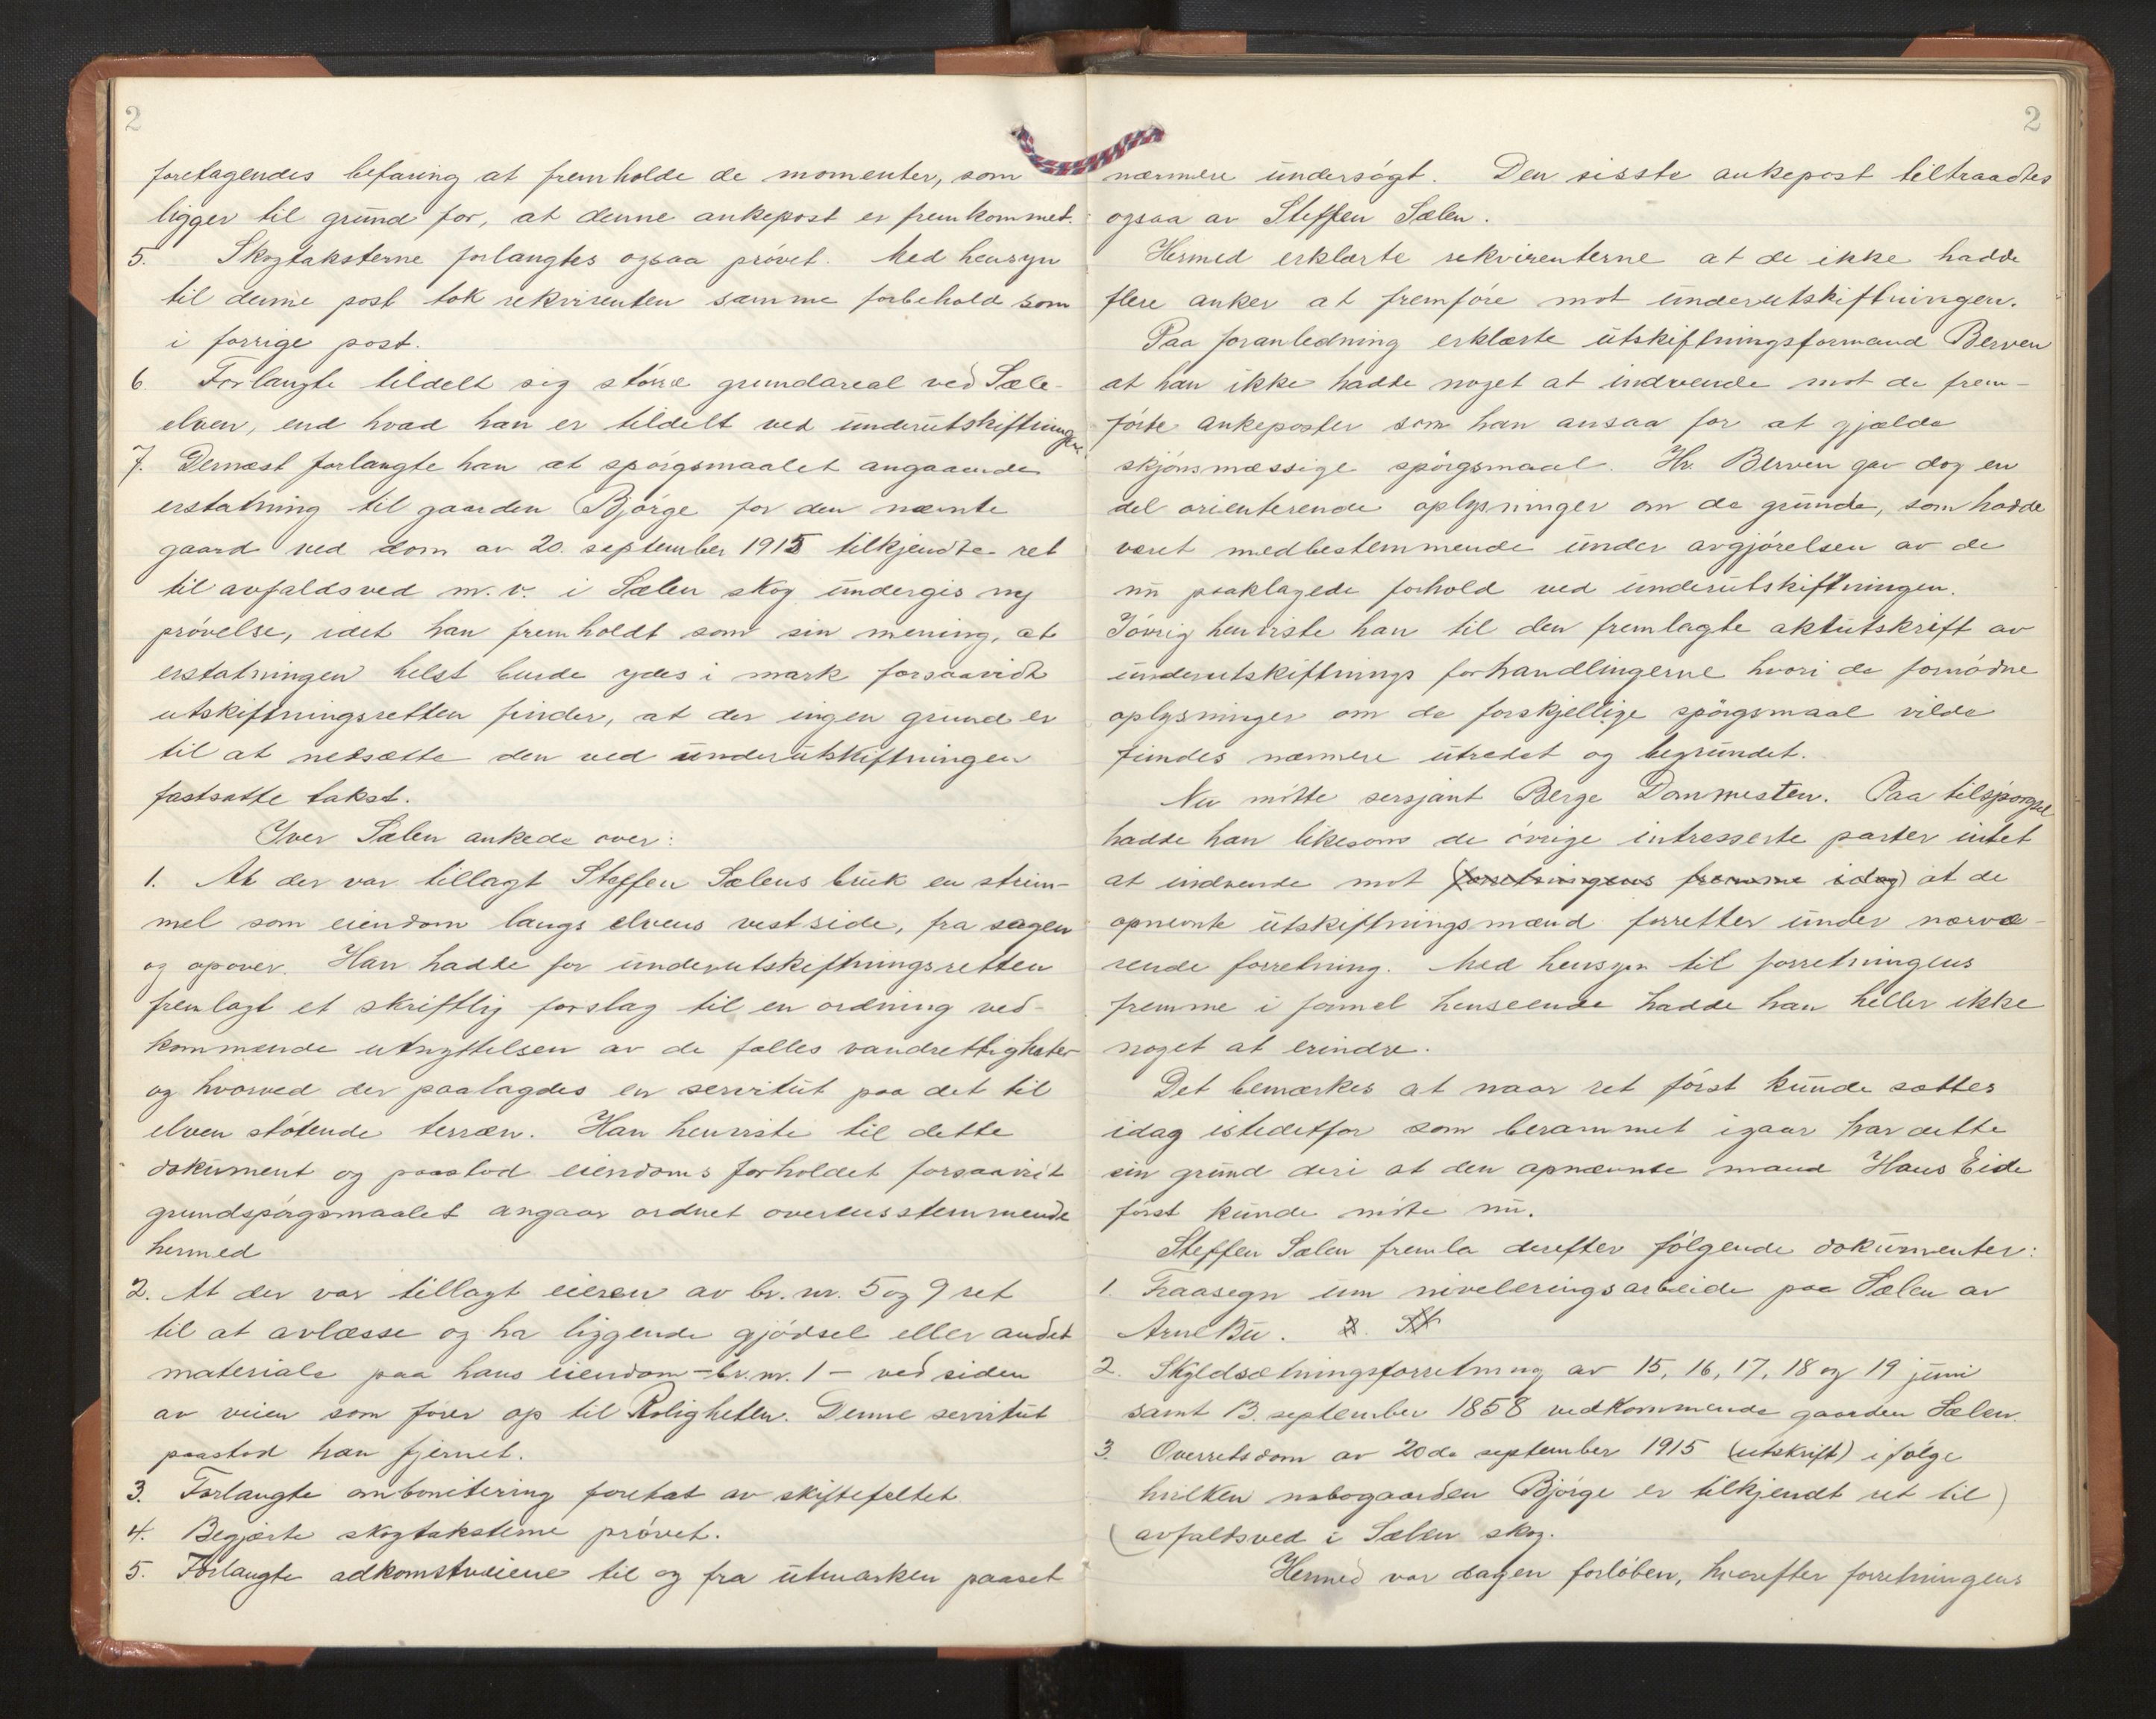 2
foretagendes befaring at fremholde de momenter, som
ligger til grund for, at denne ankepost er fremkommet.
5. Skogtaksterne forlangtes ogsaa prövet. Med hensyn
til denne post tok rekvirenten samme forbehold som
i forrige post.
6. Forlangte tildelt sig större grundareal ved Sæle-
elven, end hvad han er tildelt ved underutskiftningen.
7. Dernæst forlangte han at spörgsmaalet angaaende
erstatning til gaarden Bjørge for den nævnte
gaard ved dom av 20. september 1915 tilkjendte ret
til avfaldsved m.v. i Sælen skog undergis ny
prövelse, idet han fremholdt som sin mening, at
erstatningen helst burde ydes i mark forsaavidt
utskiftningsretten finder, at der ingen grund er
til at nedsætte den ved underutskiftningen
fastsatte takst.
Iver Sælen ankede over:
1. At der var tillagt Steffen Sælens bruk en strim-
mel som eiendom langs elvens vestside, fra sagen
og opover. Han hadde for underutskiftningsretten
fremlagt et skriftlig forslag til en ordning ved-
kommende utnyttelsen av de fælles vandrettigheter
og hvorved der paalagdes en servitut paa det til
elven stötende terræn. Han henviste til dette
dokument og paastod eiendomsforholdet forsaavidt
grundspörgsmaalet angaar ordnet overensstemmende
hermed
2. At der var tillagt eieren av br. nr. 5 og 9 ret
til at avlæsse og ha liggende gjödsel eller andet
materiale paa hans eiendom - br. nr. 1 - ved siden
av veien som förer op til Roligheten. Denne servitut
paastod han fjernet.
3. Forlangte ombonitering foretat av skiftefeltet
4. Begjærte skogtaksterne prövet.
5. Forlangte adkomstveiene til og fra utmarken paaset
2
nærmere undersögt. Den sisste ankepost tiltraadtes
ogsaa av Steffen Sælen.
Hermed erklærte rekvirenterne at de ikke hadde
flere anker at fremföre mot underutskiftningen.
Paa foranledning erklærte utskiftningsformand Berven
at han ikke hadde noget at indvende mot de frem-
förte ankeposter som han ansaa for at gjælde
skjönsmæssige spörgsmaal. Hr. Berven gav dog en
del orienterende oplysninger om de grunde, som hadde
været medbestemmende under avgjörelsen av de
nu paaklagede forhold ved underutskiftningen.
Iövrig henviste han til den fremlagte aktutskrift av
underutskiftnings forhandlingerne hvori de fornödne
oplysninger om de forskjellige spörgsmaal vilde
findes nærmere utredet og begrundet.
Nu mötte sersjant Berge Dommesten. Paa tilspörgsel
hadde han likesom de övrige intresserte parter intet
at indvende mot (forretningens fremme idag) at de
opnevnte utskiftningsmænd forretter under nærvæ-
rende forretning. Med hensyn til forretningens
fremme i formel henseende hadde han heller ikke
noget at erindre.
Det bemærkes at naar ret först kunde sættes
idag istedetfor som berammet igaar har dette
sin grund deri at den opnævnte mand Hans Eide
först kunde möte nu.
Steffen Sælen fremla derefter fölgende dokumenter:
1. Fraasegn um nivelleringsarbeide paa Sælen av
Arne Bu. 2. St
2. Skyldsætningsforretning av 15, 16, 17, 18 og 19 juni
samt 13. september 1858 vedkommende gaarden Sælen.
3. Overretsdom av 20de september 1915 (utskrift) ifölge
hvilken nabogaarden Bjørge er tilkjendt ret til)
(avfaldsved i Sælen skog.
Hermed var dagen forlöben, hvorefter forretningens